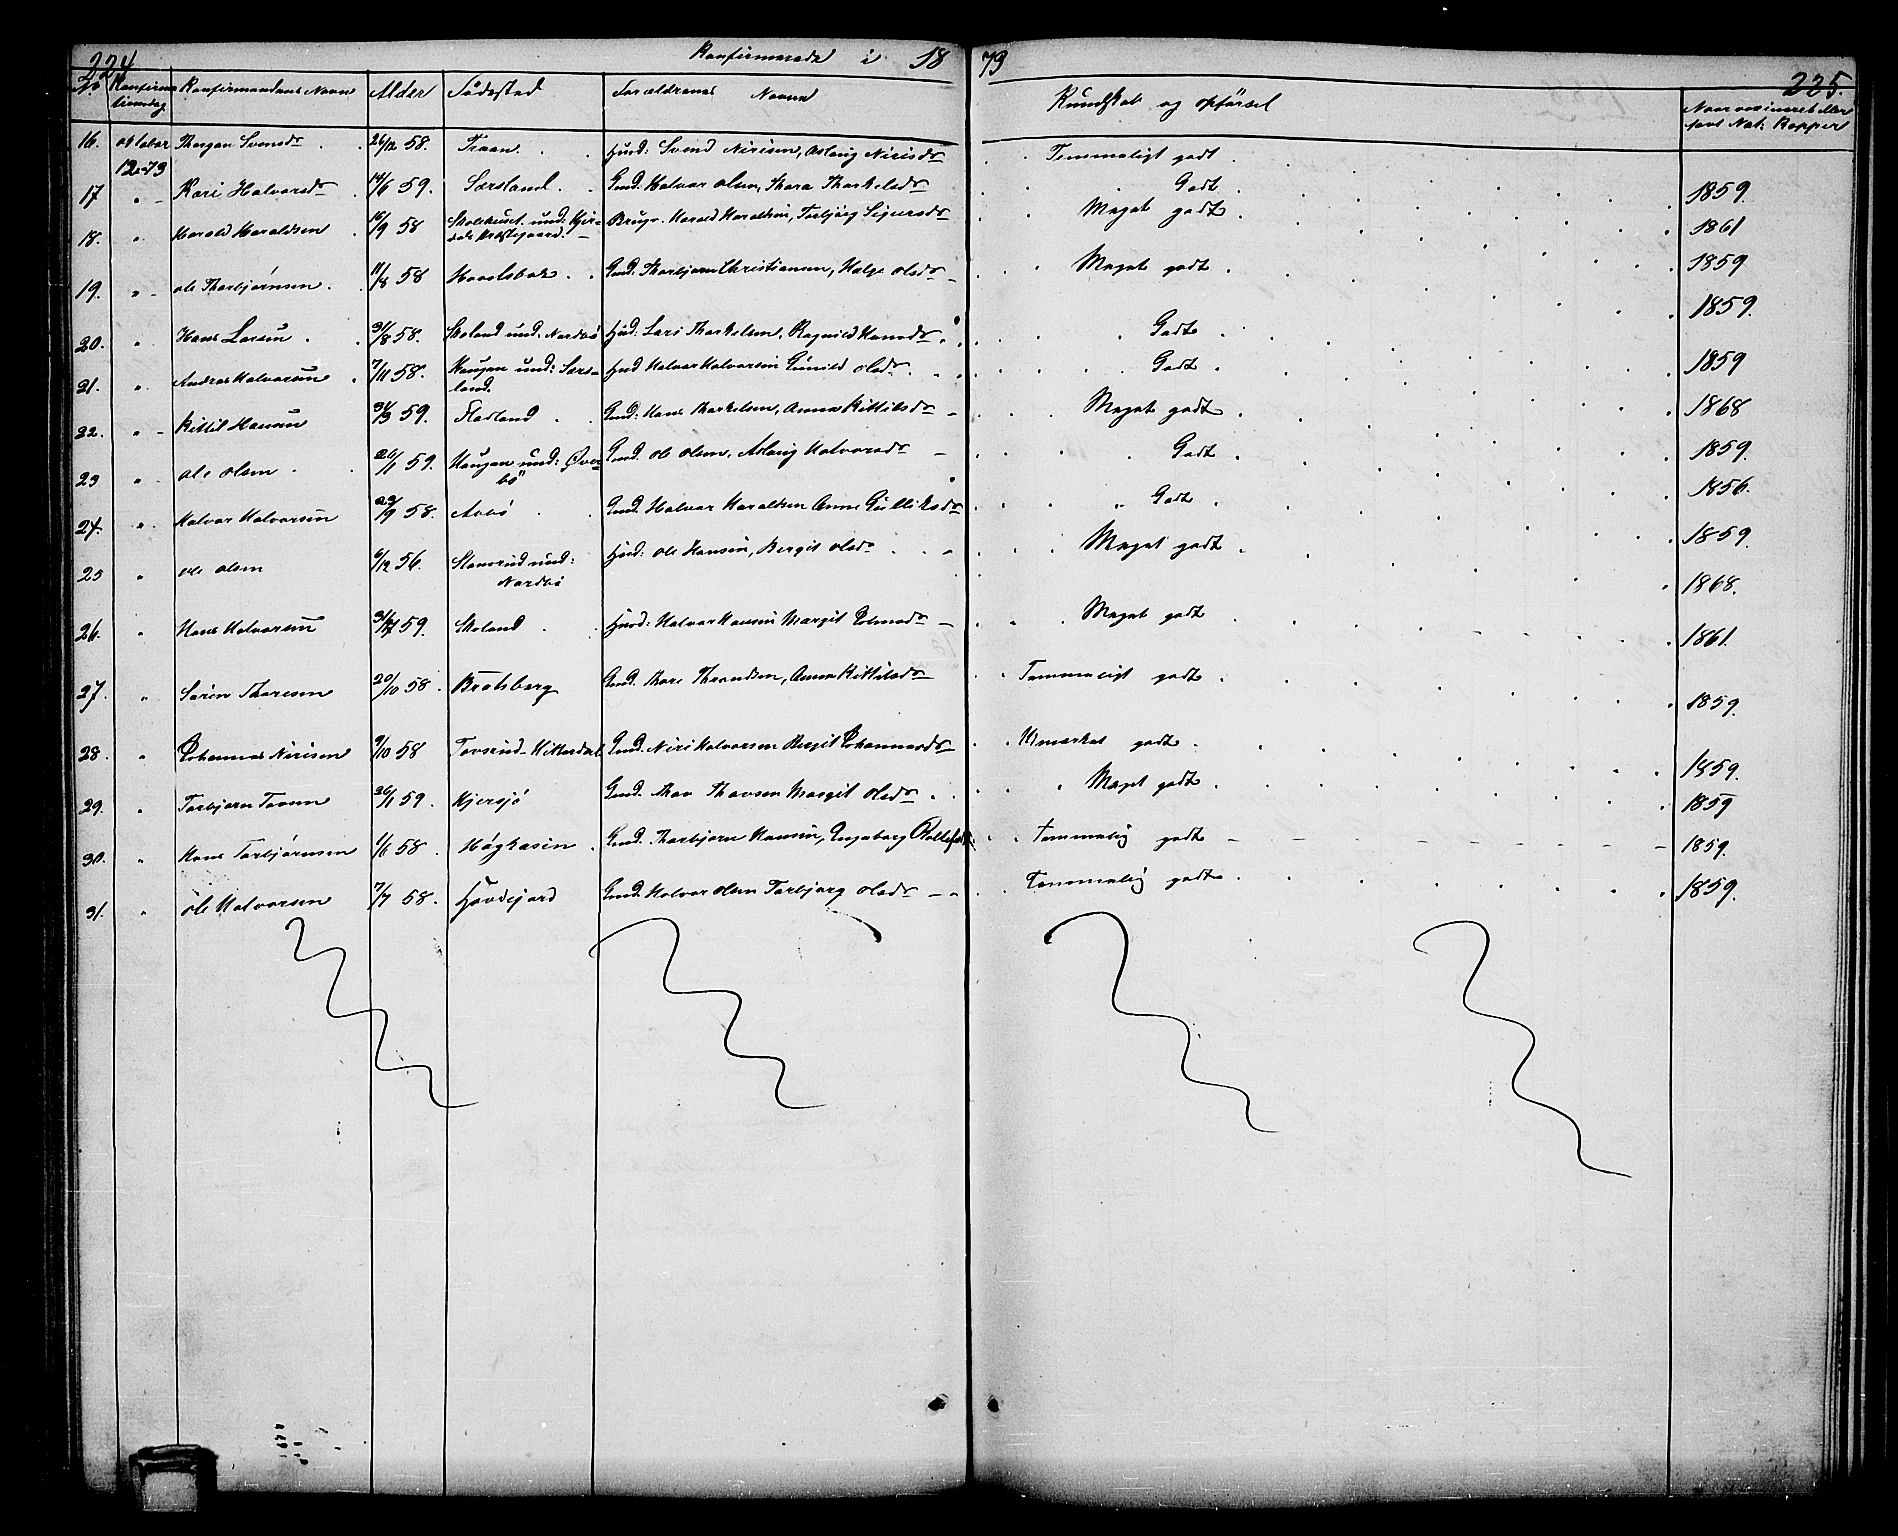 224
Konfirmerede i 18 73
225.
No Konfirma- tionsdag Konfirmandens Navn Alder Födested Forældrenes Navne Kundskab og opförsel Naar vaccineret eller havt Nat: Kopper
16. october 12-73 Thorgon Svensdr 26/12 58. Traan Husd: Svend Nirisen, Aslaug Nirisdr Temmeligt godt
17 " Kari Halvorsdr 14/6 59. Særsland Gmd. Halvor Olsen, Thora Thorkelsdr Godt 1859
18. " Harald Haraldsen 16/9 58 Skolehuset und: Hjer- dals Præstegaard Brugr. Harald Haraldsen, Torbjörg Sigursdr Meget godt 1861
19. " Ole Thorbjörnsen 11/8 58 Hovelsbak Gmd. Thorbjørn Christiansen, Helge Olsdr Meget godt 1859
20. " Hans Larsen 31/8 58. Skoland und. Nordbö Husd: Lars Thorkelsen, Ragnild Hansdr Godt 1859.
21. " Andres Halvorsen 7/11 58. Haugen und: Særs- land. Husd Halvor Halvorsen Gunild Olsdr Godt 1859
22. " Kittil Hansen 31/3 59. Fladland Gmd: Hans Thorkelsen, Anne Kittilsdr Meget godt 1868
23 " Ole Olsen 20/1 59. Haugen und: Över- bö Gmd. Ole Olsen, Aslaug Halvorsdr Godt 1859.
24. " Halvor Halvorsen 29/9 58. Avbö Gmd. Halvor Haraldsen Anne Gulliksdr " Godt 1856.
25 " Ole Olsen 6/12 56. Stensrud und: Nordbö Husd: Ole Hansen, Bergit Olsdr Meget godt 1859.
26. " Hans Halvorsen 59. Skoland Husd: Halvor Hansen Margit Meget godt 1868.
1861.
27. " Sören Thoresen 20/10 58. Bratsberg Gmd. Thore Throndsen, Anne Kittilsdr Temmeligt godt 1859.
28. " Johannes Nirisen 9/10 58 Tovsrud-Hitterdal Gmd. Niri Halvorsen Bergit Johannesdr Udmærket godt 1859.
29. " Torbjørn Tovsen 26/1 59. Hjersjö Gmd. Thov Thovsen Margit Olsdr Meget godt 1859
30. " Hans Torbjörnsen 1/6 58. Högkasin Gmd. Thorbjørn Hansen, Ingeborg Temmelig godt 1859.
31. " Ole Halvorsen 7/7 58. Hövdejord Gmd. Halvor Olsen Torbjorg Olsdr Temmelig godt 1859.